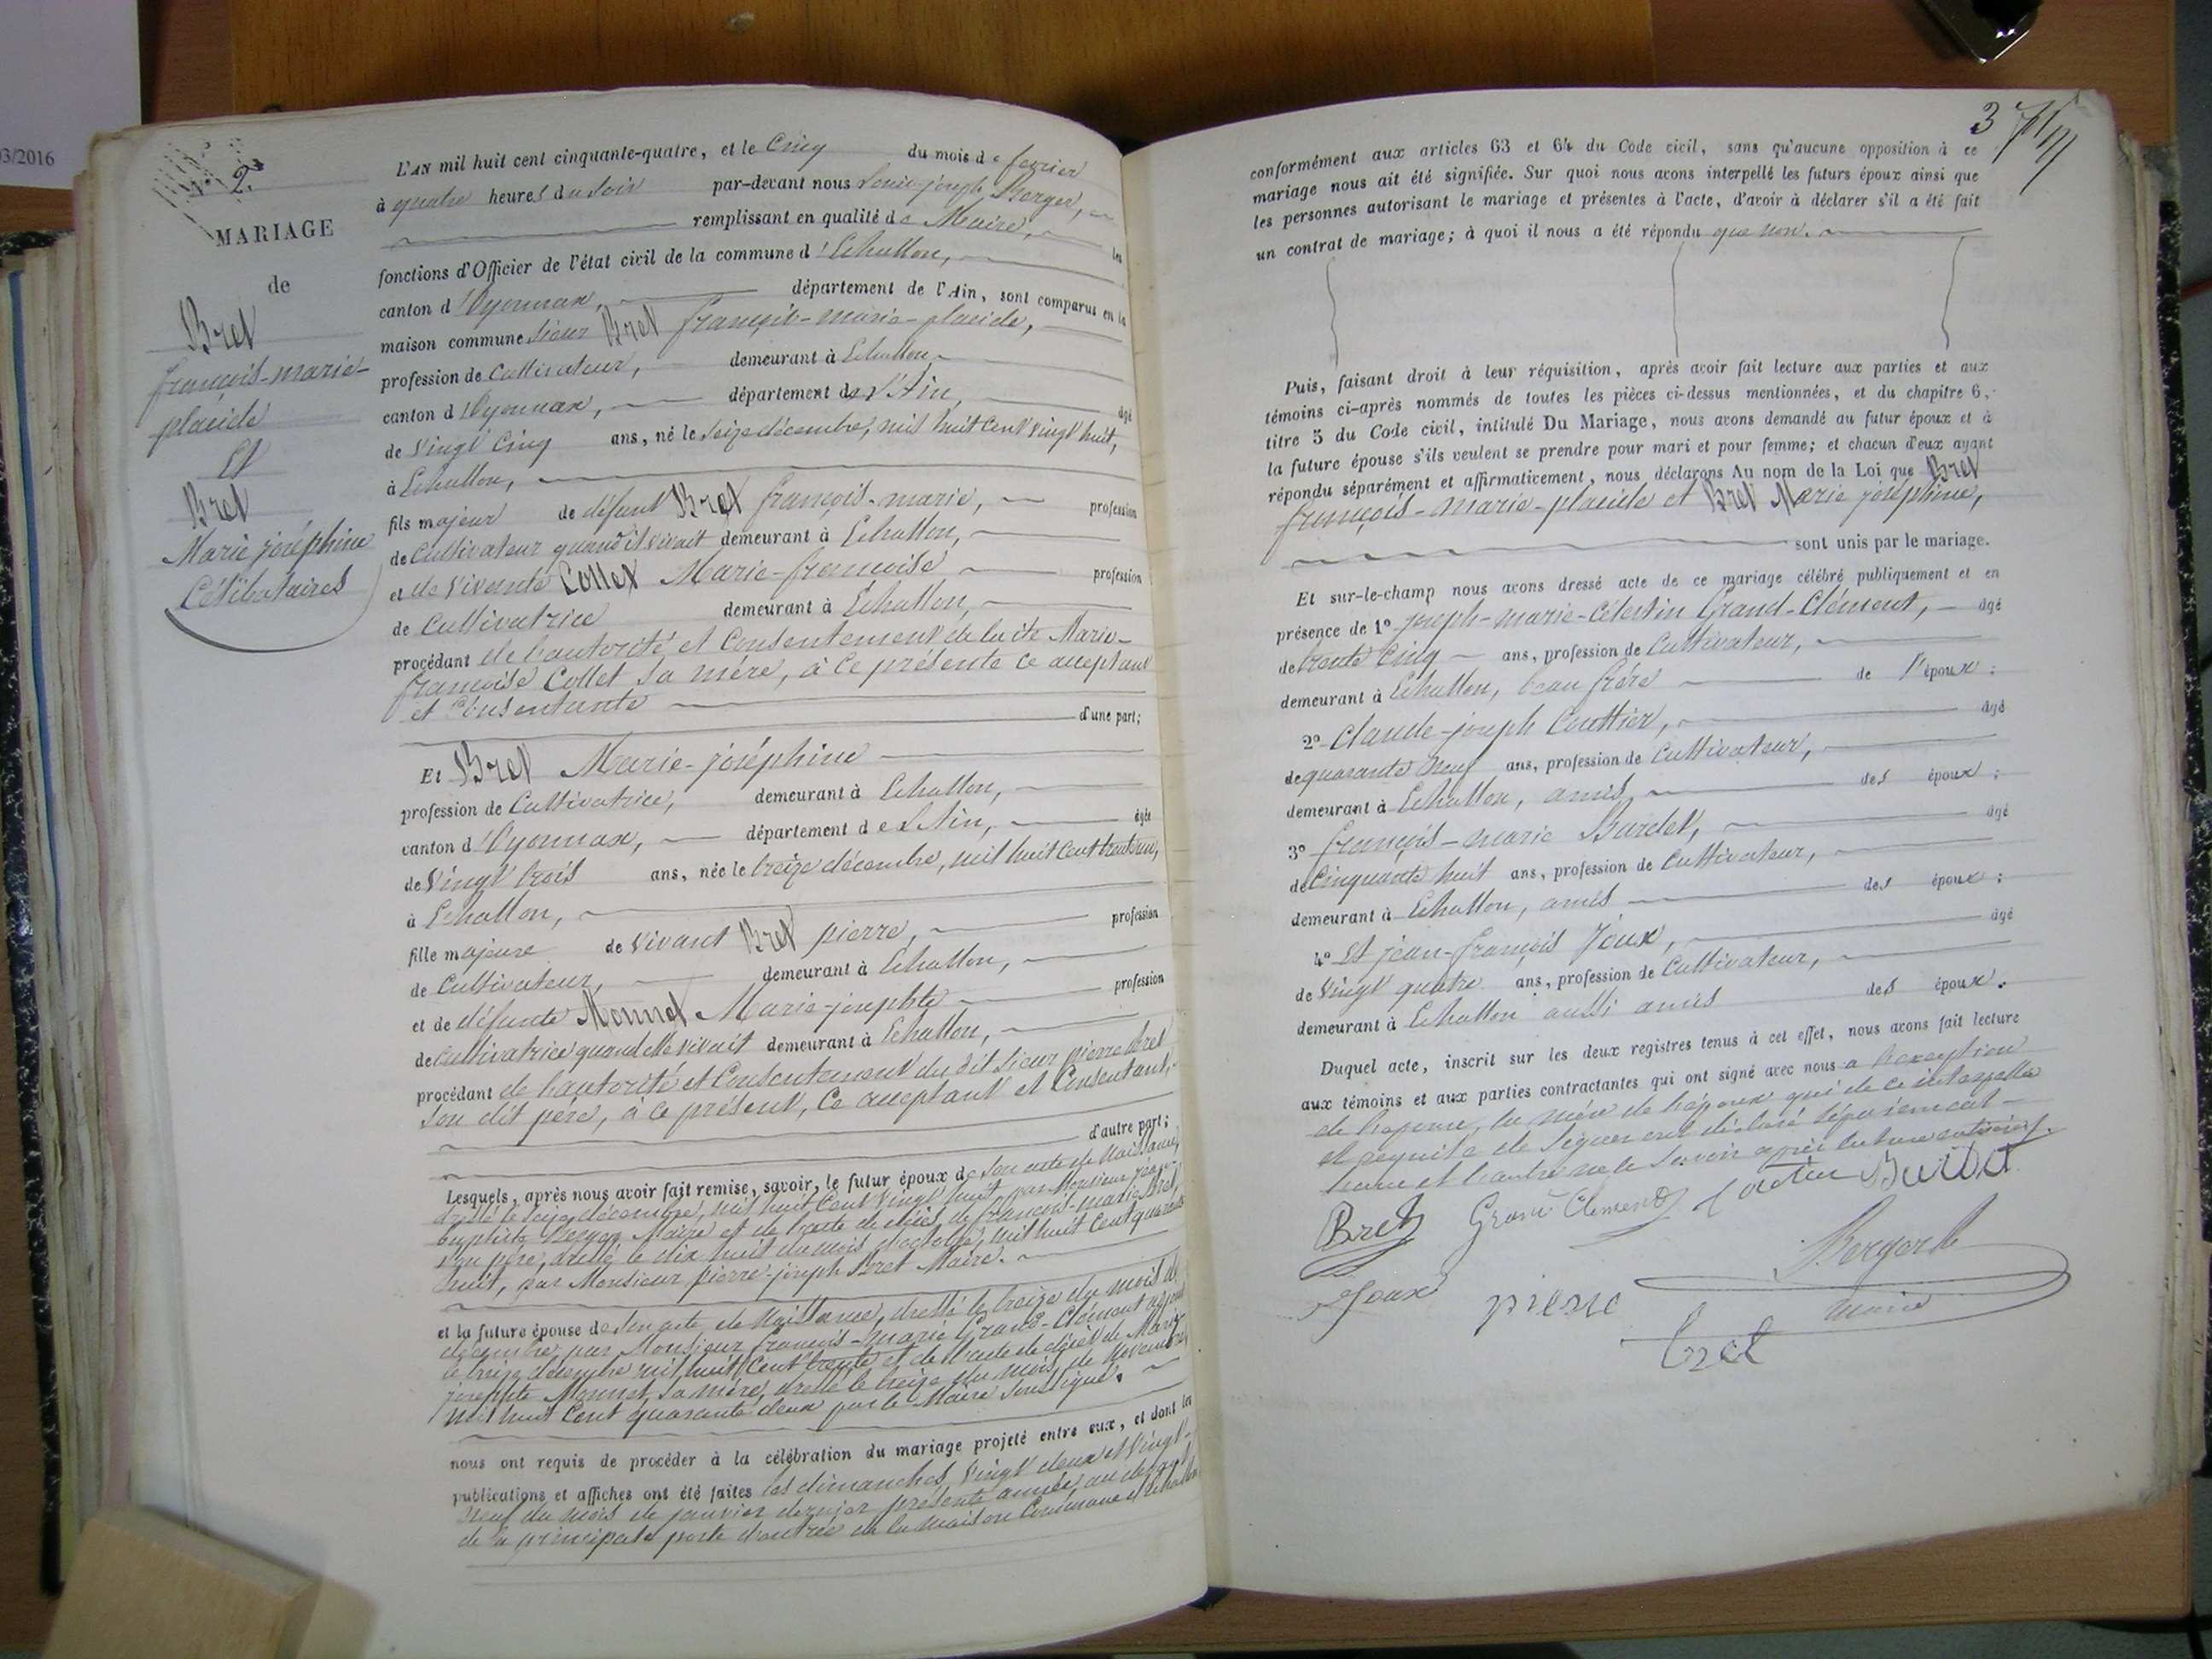 03/2016
2.
MARIAGE
de
Bret
françois-marie-
placide
Et
Bret
Marie joséphine
Célibataires
L'AN mil huit cent cinquante-quatre, et le Cinq du mois de fevrier
à quatre heures du Soir par-devant nous Louis-joseph Berger,
remplissant en qualité de Maire, les
fonctions d'Officier de l'état civil de la commune d'Echallon,
canton d'Oyonnax, département de l'Ain, sont comparus en la
maison commune Sieur Bret françois-marie-placide,
profession de Cultivateur, demeurant à Echallon
canton d'Oyonnax, département de l'Ain, âgé
de Vingt Cinq ans, né le Seize décembre, mil huit Cent Vingt huit,
à Echallon,
fils majeur de défunt Bret françois-marie, profession
de Cultivateur quand il vivait demeurant à Echallon,
et de Vivante Collet Marie-françoise profession
de Cultivatrice demeurant à Echallon,
procédant de l'autorité et Consentement de la dte Marie-
françoise Collet Sa mère, à Ce présente Ce acceptant
et Consentante
d'une part;
Et Bret Marie-joséphine
profession de Cultivatrice, demeurant à Echallon,
canton d'Oyonnax, département de l'Ain, âgée
de Vingt trois ans, née le treize décembre, mil huit Cent trente
à Echallon,
fille majeure de Vivant Bret pierre, profession
de Cultivateur, demeurant à Echallon,
et de défunte Monnet Marie-josephte profession
de Cultivatrice quand elle vivait demeurant à Echallon,
procédant de l'autorité et Consentement du dit Sieur pierre Bret
Son dit père, à ce présent, Ce acceptant et Consentant,
d'autre part;
Lesquels, après nous avoir fait remise, savoir, le futur époux de Son acte de Naissance,
dressé le Seize décembre, mil huit Cent Vingt huit, par Monsieur jean-
baptiste Berger Maire et de l'acte de décès de françois-marie Bret,
Son père, dressé le dix huit du mois d'octobre, mil huit Cent quarante
huit, par Monsieur pierre-joseph Bret Maire.
et la future épouse de Son acte de Naissance, dressé le treize du mois de
décembre par Monsieur françois-marie Grand-Clément
le treize décembre mil huit Cent trente et de l'acte de décès de Marie
josephte Monnet Sa mère, dressé le treize du mois de Novembre
mil huit Cent quarante deux par le Maire Soussigné.
nous ont requis de procéder à la célébration du mariage projeté entre eux, et dont les
publications et affiches ont été faites les dimanches Vingt deux et Vingt-
Neuf du mois de janvier dernier présente année, au devant
de la principale porte d'entrée de la maison Commune d'Echallon
3
conformément aux articles 63 et 64 du Code civil, sans qu'aucune opposition à ce
mariage nous ait été signifiée. Sur quoi nous avons interpellé les futurs époux ainsi que
les personnes autorisant le mariage et présentes à l'acte, d'avoir à déclarer s'il a été fait
un contrat de mariage; à quoi il nous a été répondu que non.
Puis, faisant droit à leur réquisition, après avoir fait lecture aux parties et aux
témoins ci-après nommés de toutes les pièces ci-dessus mentionnées, et du chapitre 6,
titre 5 du Code civil, intitulé Du Mariage, nous avons demandé au futur époux et à
la future épouse s'ils veulent se prendre pour mari et pour femme; et chacun d'eux ayant
répondu séparément et affirmativement, nous déclarons Au nom de la Loi que Bret
françois-marie-placide et Bret Marie joséphine,
sont unis par le mariage.
Et sur-le-champ nous avons dressé acte de ce mariage célébré publiquement et en
présence de 1° joseph-marie-Célestin Grand-Clément, âgé
de trente Cinq ans, profession de Cultivateur,
demeurant à Echallon, beau frère de l'époux;
2° Claude-joseph Couttier, âgé
de quarante Neuf ans, profession de Cultivateur,
demeurant à Echallon, amis des époux;
3° françois-marie Burdet, âgé
de Cinquante huit ans, profession de Cultivateur,
demeurant à Echallon, amis des époux;
4° Et jean-françois Joux, âgé
de Vingt quatre ans, profession de Cultivateur,
demeurant à Echallon aussi amis des époux.
Duquel acte, inscrit sur les deux registres tenus à cet effet, nous avons fait lecture
aux témoins et aux parties contractantes qui ont signé avec nous a l'exception
de l'epouse, la mère de l'époux qui de ce interpellés
et requise de Signer ont déclaré Séparement
l'une et l'autre ne le Savoir après lecture
Bret Grand Clement Coutier Burdet
Joux pierre Berger
bret maire